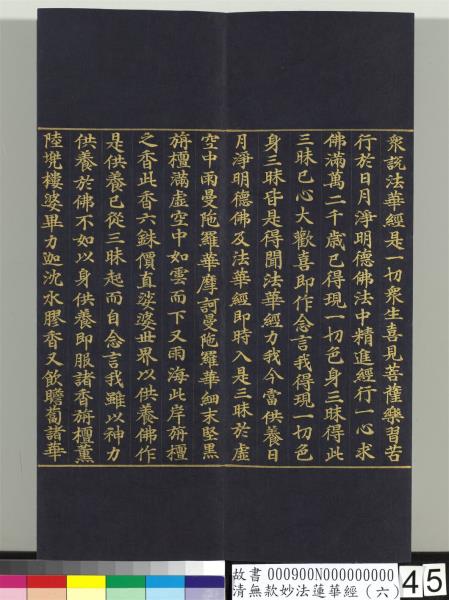 衆說法華經是一切衆生喜見菩薩樂習苦
行於日月淨明德佛法中精進經行一心求
佛滿萬二千歲已得現一切色身三昧得此
三昧已心大歡喜即作念言我得現一切色
身三昧皆是得聞法華經力我今當供養日
月淨明德佛及法華經即時入是三昧於虛
空中雨曼陁羅華摩訶曼陁羅華細末堅黑
旃檀滿虛空中如雲而下又雨海此岸旃檀
之香此香六銖價直娑婆世界以供養佛作
是供養已從三昧起而自念言我雖以神力
供養於佛不如以身供養即服諸香旃檀薰
陸兜樓婆畢力迦沈水膠香又飲瞻蔔諸華
故書 000900N000000000
清無款妙法蓮華經（六）
45